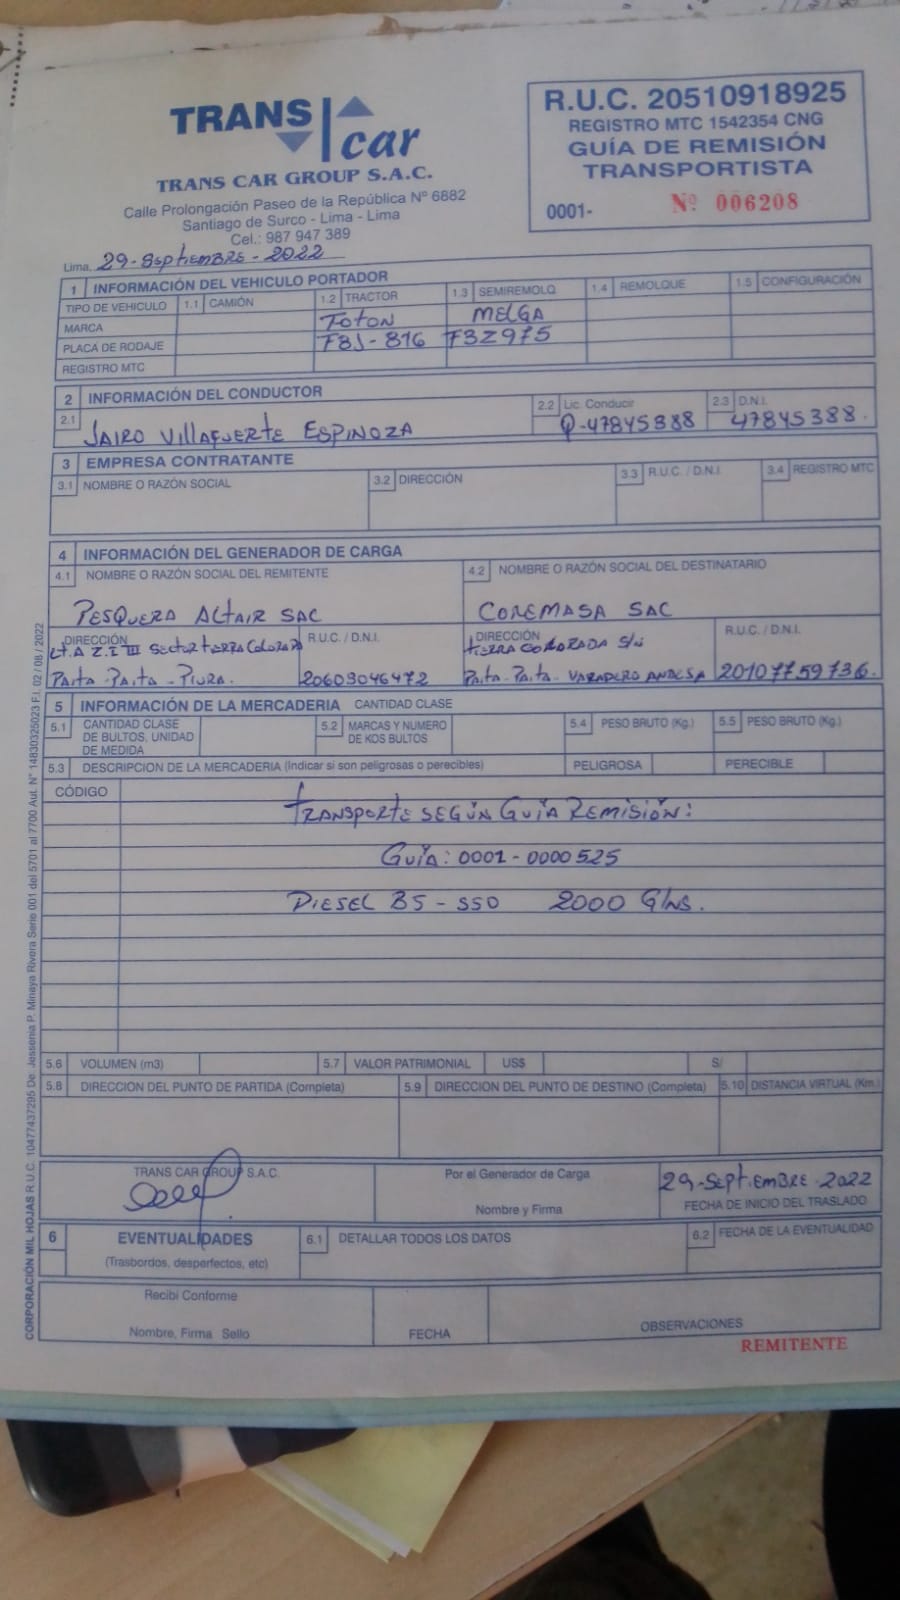 TRANS car
TRANS CAR GROUP S.A.C.
Calle Prolongación Paseo de la República Nº 6882
Santiago de Surco - Lima - Lima
Cel.: 987 947 389
R.U.C. 20510918925
REGISTRO MTC 1542354 CNG
GUÍA DE REMISIÓN
TRANSPORTISTA
0001- Nº 006208
Lima, 29-Septiembre-2022
1 INFORMACIÓN DEL VEHICULO PORTADOR
TIPO DE VEHICULO 1.1 CAMIÓN 1.2 TRACTOR 1.3 SEMIREMOLQ 1.4 REMOLQUE 1.5 CONFIGURACIÓN
MARCA Foton MELGA
PLACA DE RODAJE F8J-816 F3Z975
REGISTRO MTC
2 INFORMACIÓN DEL CONDUCTOR
2.1 JAIRO VILLAFUERTE ESPINOZA
2.2 Lic. Conducir Q-47845388
2.3 D.N.I. 47845388.
3 EMPRESA CONTRATANTE
3.1 NOMBRE O RAZÓN SOCIAL 3.2 DIRECCIÓN 3.3 R.U.C. / D.N.I. 3.4 REGISTRO MTC
4 INFORMACIÓN DEL GENERADOR DE CARGA
4.1 NOMBRE O RAZÓN SOCIAL DEL REMITENTE 4.2 NOMBRE O RAZÓN SOCIAL DEL DESTINATARIO
PESQUERA ALTAIR SAC COREMASA SAC
DIRECCIÓN R.U.C. / D.N.I. DIRECCIÓN R.U.C. / D.N.I.
Lt. A Z.I III Sector tierra Colorada tierra COLORADA S/N
Paita-Paita-Piura. 20603046472 Paita-Paita-VARADERO ANDESA 20107759736.
5 INFORMACIÓN DE LA MERCADERIA CANTIDAD CLASE
5.1 CANTIDAD CLASE DE BULTOS, UNIDAD DE MEDIDA 5.2 MARCAS Y NUMERO DE KOS BULTOS 5.4 PESO BRUTO (Kg.) 5.5 PESO BRUTO (Kg.)
5.3 DESCRIPCION DE LA MERCADERIA (Indicar si son peligrosas o perecibles) PELIGROSA PERECIBLE
CÓDIGO
TRANSPORTE SEGÚN GUÍA REMISIÓN:
GUÍA: 0001-0000525
DIESEL B5-S50 2000 Glns.
5.6 VOLUMEN (m3) 5.7 VALOR PATRIMONIAL US$ S/
5.8 DIRECCION DEL PUNTO DE PARTIDA (Completa) 5.9 DIRECCION DEL PUNTO DE DESTINO (Completa) 5.10 DISTANCIA VIRTUAL (Km.)
TRANS CAR GROUP S.A.C. Por el Generador de Carga 29-Septiembre-2022
Nombre y Firma FECHA DE INICIO DEL TRASLADO
6 EVENTUALIDADES 6.1 DETALLAR TODOS LOS DATOS 6.2 FECHA DE LA EVENTUALIDAD
(Trasbordos, desperfectos, etc)
Recibi Conforme
Nombre, Firma Sello FECHA OBSERVACIONES
REMITENTE
CORPORACIÓN MIL HOJAS R.U.C. 10477437295 De: Jessenia P. Minaya Rivera Serie 001 del 5701 al 7700 Aut. N° 14830325023 F.I. 02 / 08 / 2022